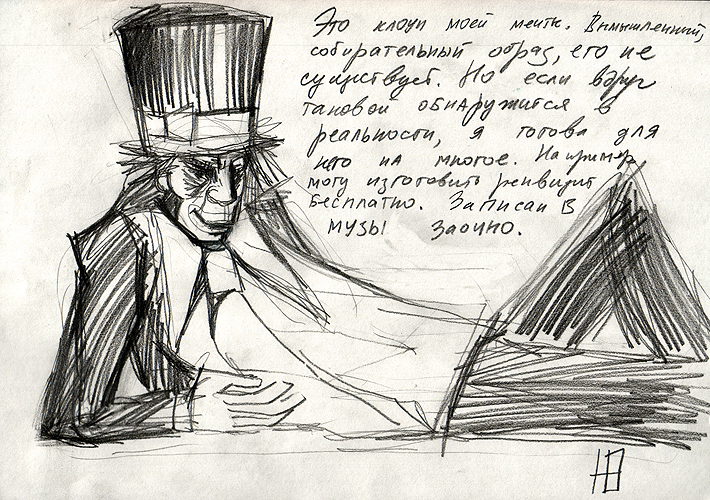 Это клоун моей мечты. Вымышленный,
собирательный образ, его не
существует. Но если вдруг
таковой обнаружится в
реальности, я готова для
него на многое. Например
могу изготовить реквизит
бесплатно. Записан в
музы заочно.
Ю